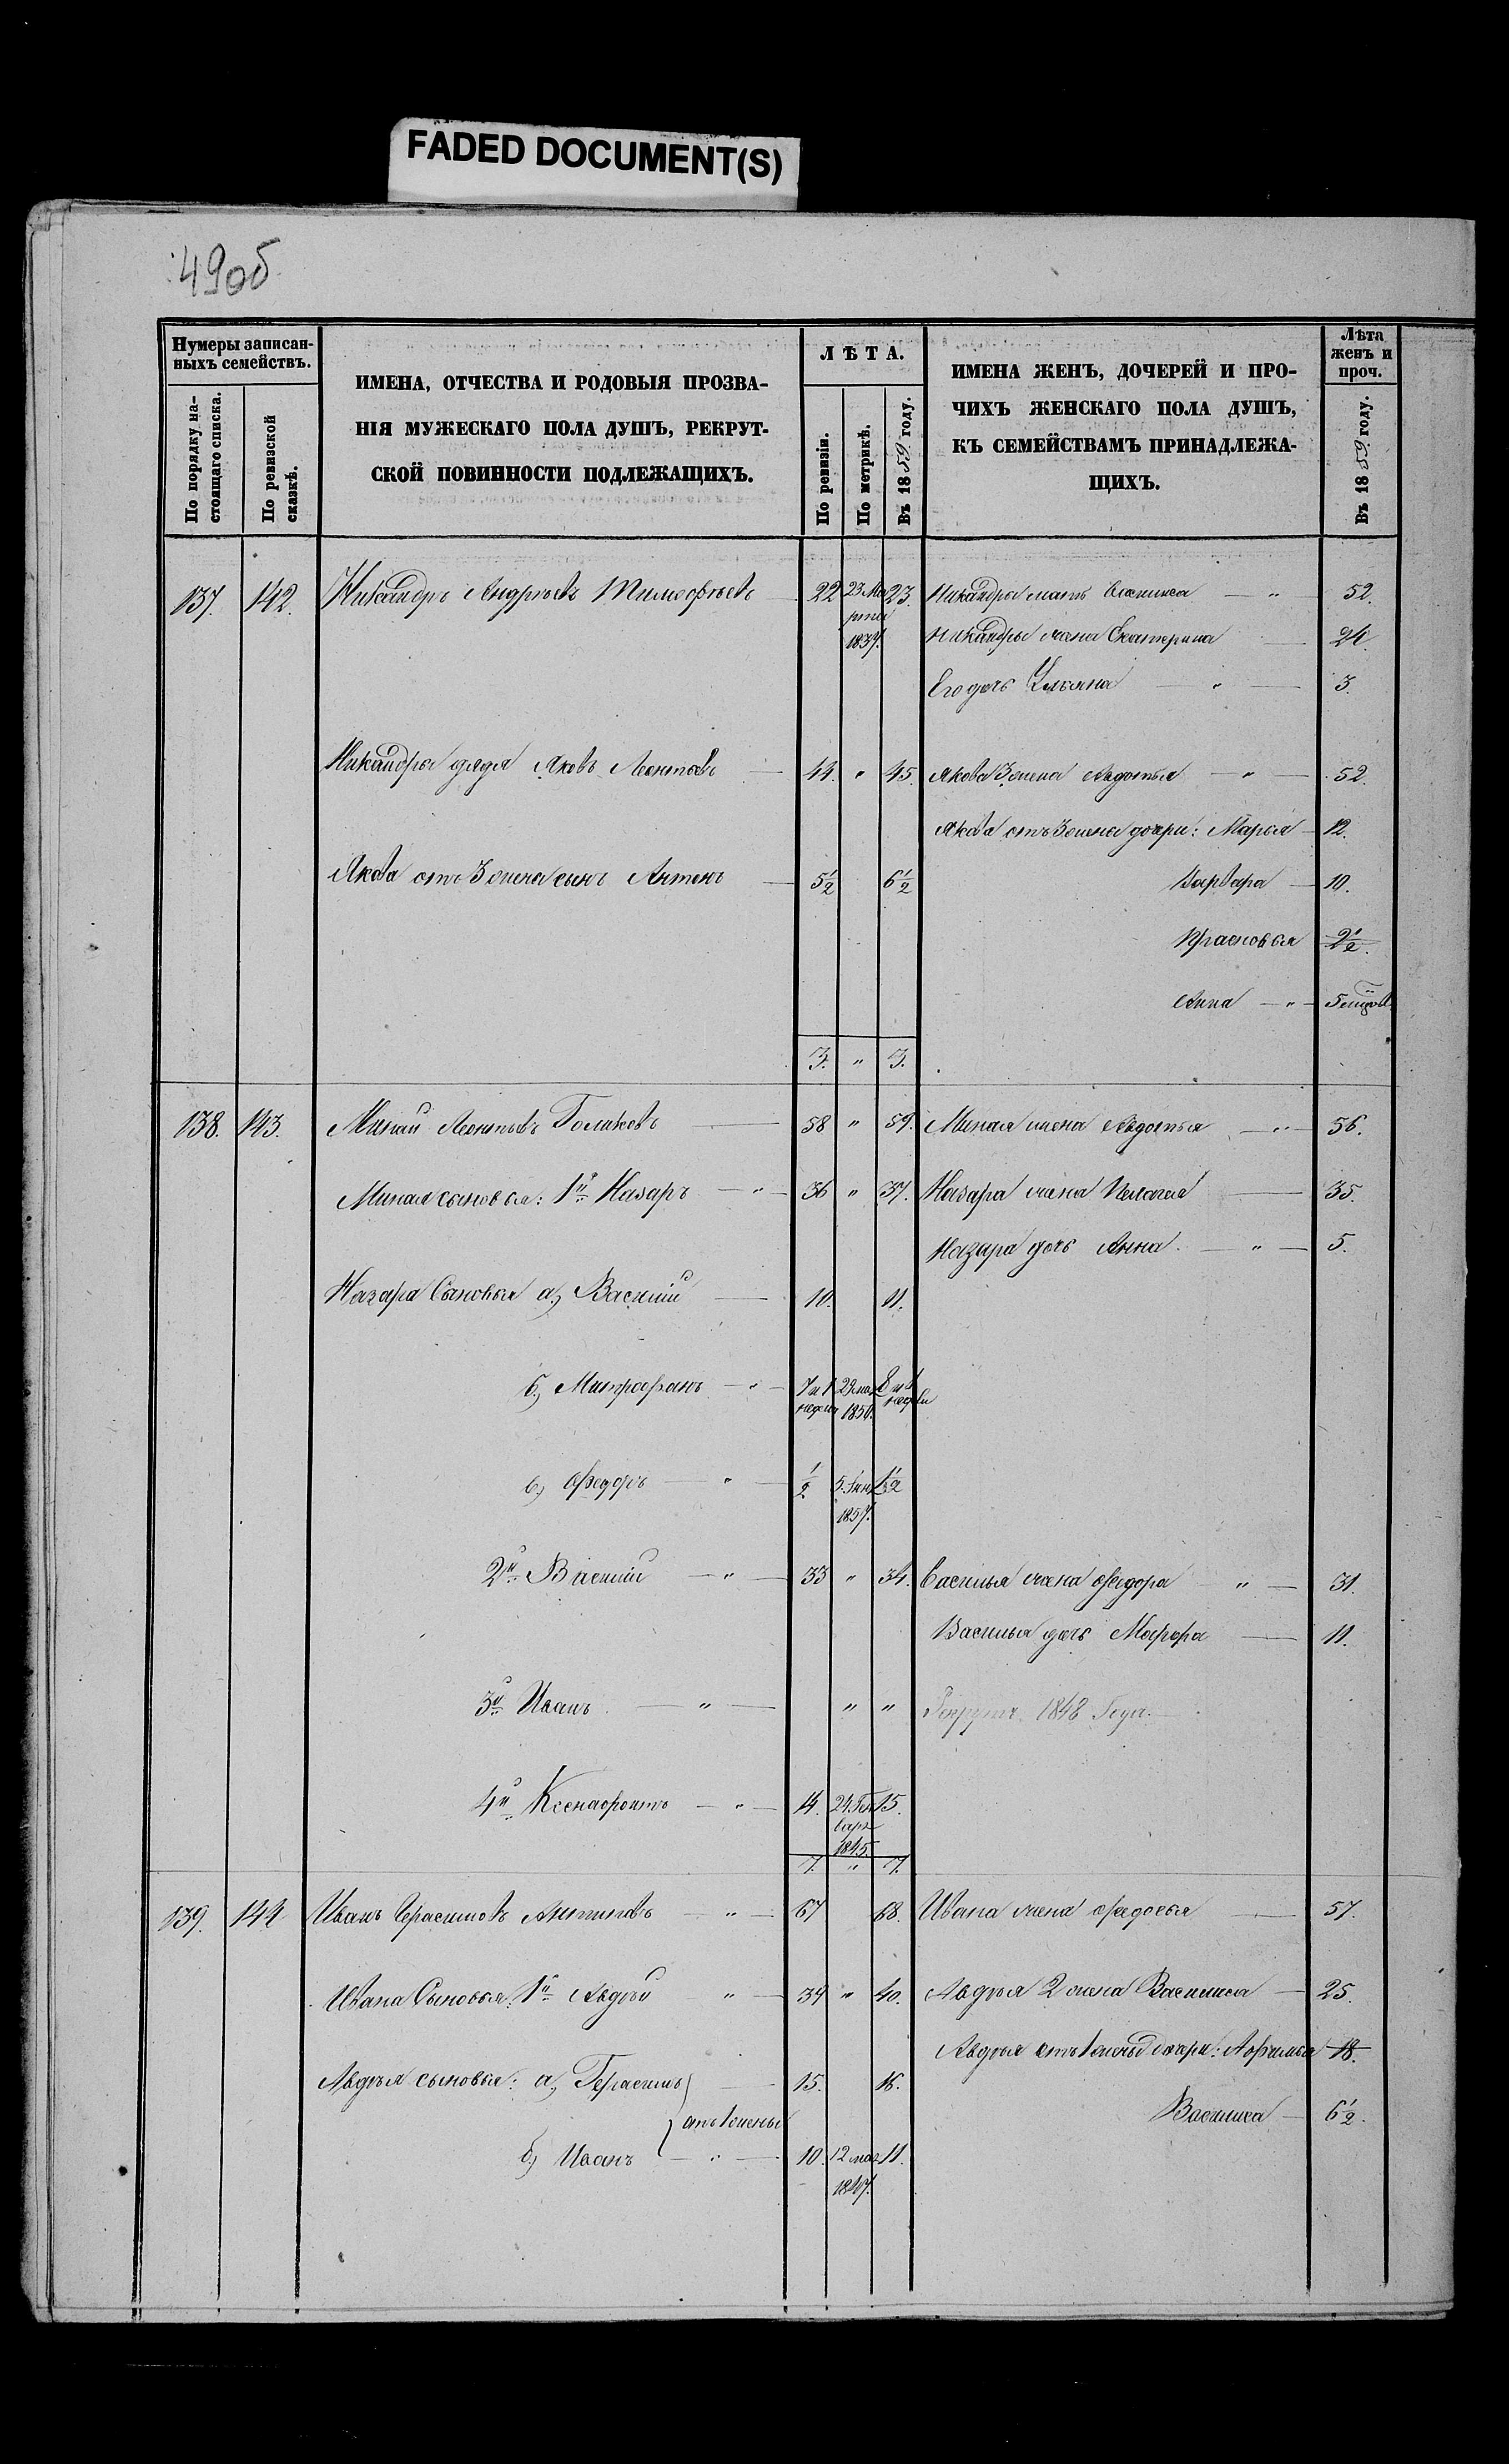 FADED DOCUMENT(S)
49об
Нумеры записан-
ныхъ семействъ.
По порядку на-
стоящаго списка.
По ревизской
сказкѣ.
ИМЕНА, ОТЧЕСТВА И РОДОВЫЯ ПРОЗВА-
НІЯ МУЖЕСКАГО ПОЛА ДУШЪ, РЕКРУТ-
СКОЙ ПОВИННОСТИ ПОДЛЕЖАЩИХЪ.
ЛѢТА.
По ревизіи.
По метрикѣ.
Въ 1859 году.
ИМЕНА ЖЕНЪ, ДОЧЕРЕЙ И ПРО-
ЧИХЪ ЖЕНСКАГО ПОЛА ДУШЪ,
КЪ СЕМЕЙСТВАМЪ ПРИНАДЛЕЖА-
ЩИХЪ.
Лѣта
женъ и
проч.
Въ 1859 году.
137. 142. Никандръ Андрѣевъ Тимофѣевъ 22 23 Ма 23. Никандры мать — " 52.
рта
1837. Никандры жена Екатерина — 24.
Его дочь Ульяна — " — 3.
Никандры дядя Яковъ Леонтьевъ — 44. " 45. Якова 3 жена Авдотья — " — 52.
Якова отъ 3 жены дочери: Марья — 12.
Якова отъ 3 жены сынъ Антонъ — 5½ 6½ Варвара — 10.
Прасковья 2½.
Анна — " — 5
3. " 3.
138. 143. Минай Леонтьевъ Голиковъ — 58 " 59. Миная жена Авдотья — " — 56.
Миная сыновья: 1й Назаръ — " — 36 " 37. Назара жена Пелагея — 35.
Назара дочь Анна. — " — 5.
Назара Сыновья а, Василий — 10. 11.
б, Митрофанъ — " — 7 и 1 29 мая 8 и 1
недели 1850. недели
в, Федоръ — " — ½ 5. Янв 1½
1857.
2й Василий — " — 33 " 34. Василья жена Федора " — 31.
Василья дочь Марфа — 11.
3й Иванъ — " — " " Рекрутъ 1848 Года.
4й Ксенафонтъ — " — 14. 24. Ген 15.
варя
1845.
7. " 7.
139. 144 Иванъ Герасимовъ Антиповъ — " — 67 68. Ивана жена Федосья — 57.
Ивана Сыновья: 1й Авдѣй " — 39 " 40. Авдѣя 2 жена Василиса — 25.
Авдѣя отъ 1 жены дочери: Афимья 18.
Авдѣя сыновья: а, Герасимъ — 15. 16.
отъ 1 жены Василиса — 6½.
б, Иванъ — " — 10. 12 мая 11.
1847.